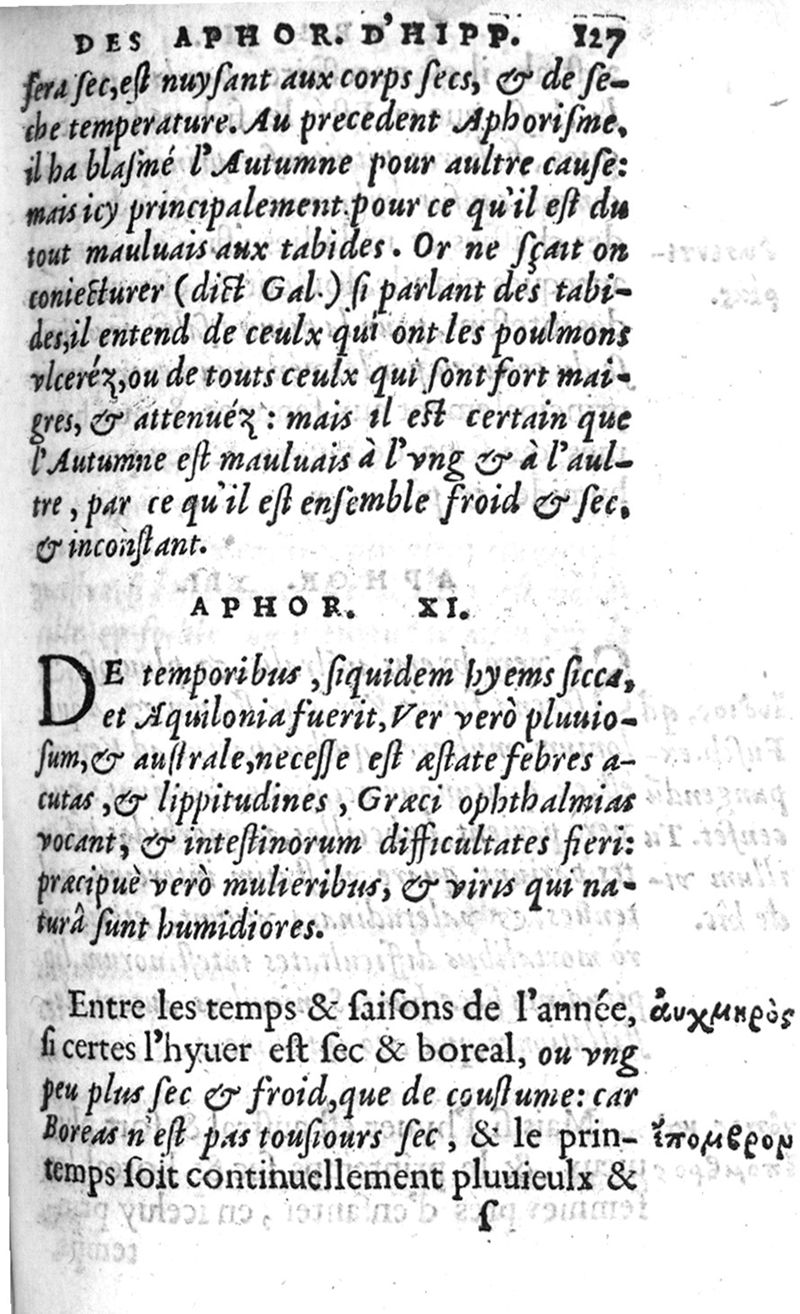 DES APHOR. D'HIPP. 127
sera sec, est nuysant aux corps secs, & de se-
che temperature. Au precedent Aphorisme,
il ha blasmé l'Autumne pour aultre cause:
mais icy principalement pour ce qu'il est du
tout mauluais aux tabides. Or ne sçait on
coniecturer (dict Gal.) si parlant des tabi-
des, il entend de ceulx qui ont les poulmons
vlceréz, ou de touts ceulx qui sont fort mai-
gres, & attenuéz : mais il est certain que
l'Autumne est mauluais à l'vng & à l'aul-
tre, par ce qu'il est ensemble froid & sec,
& inconstant.
APHOR. XI.
DE temporibus, siquidem hyems sicca,
et Aquilonia fuerit, Ver verò pluuio-
sum, & australe, necesse est æstate febres a-
cutas, & lippitudines, Græci ophthalmias
vocant, & intestinorum difficultates fieri:
præcipuè verò mulieribus, & viris qui na-
turâ sunt humidiores.
Entre les temps & saisons de l'année, ἀυχμηρὸς
si certes l'hyuer est sec & boreal, ou vng
peu plus sec & froid, que de coustume: car
Boreas n'est pas tousiours sec, & le prin- ἔπομβρομ
temps soit continuellement pluuieulx &
ſ